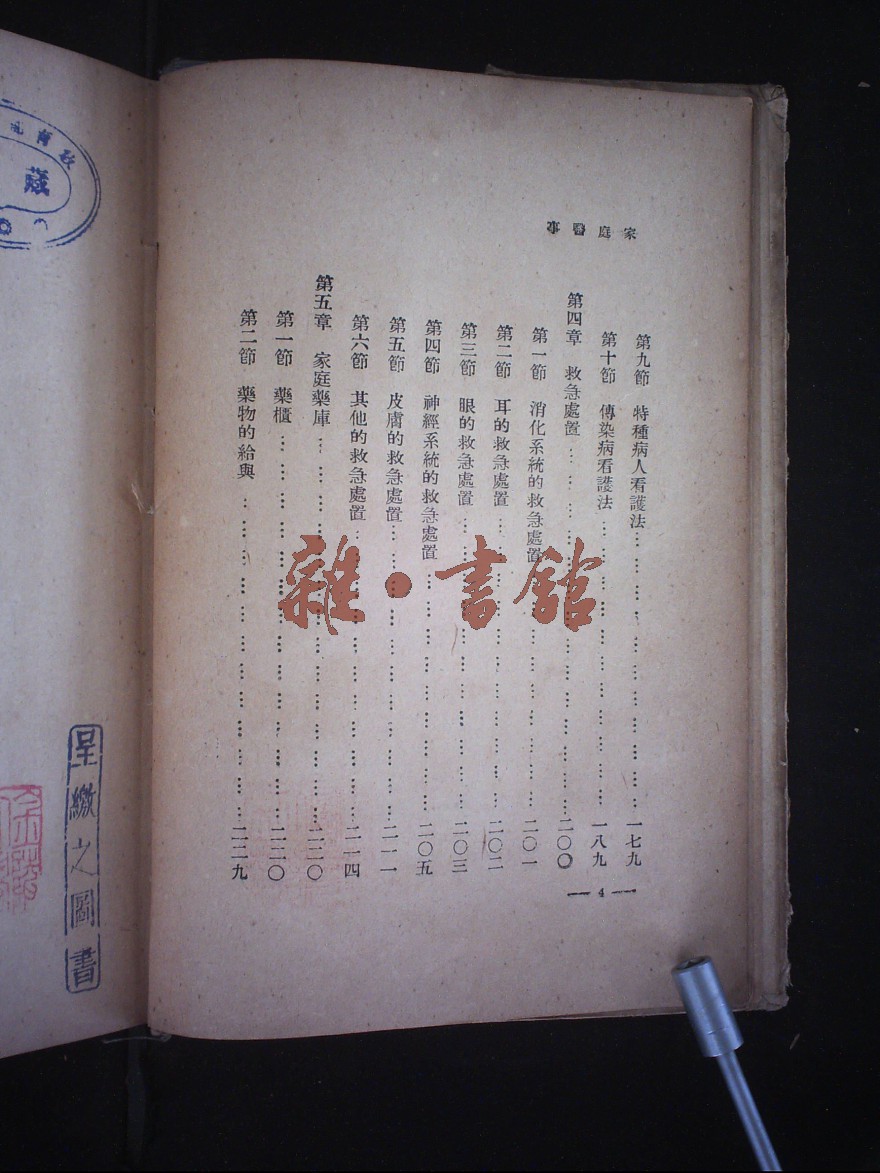 家庭醫
第九節 特種病人看護法… … … … … … … … … … …一七九
第十節 傳染病看護法… … … … … … … … … … …一八九
第四章 救急處置… … … … … … … … … … … … …二〇〇
第一節 消化系統的救急處置… … … … … … … … …二〇一
第二節 耳的救急處置… … … … … … … … … … …二〇二
第三節 眼的救急處置… … … … … … … … … … …二〇三
第四節 神經系統的救急處置… … … … … … … … …二〇五
第五節 皮膚的救急處置… … … … … … … … … …二一一
第六節 其他的救急處置… … … … … … … … … …二一四
第五章 家庭藥庫… … … … … … … … … … … … …二二〇
第一節 藥櫃… … … … … … … … … … … … … …二二〇
第二節 藥物的給與… … … … … … … … … … … …二二九
— 4 —
雜·書館
藏
呈繳之圖書